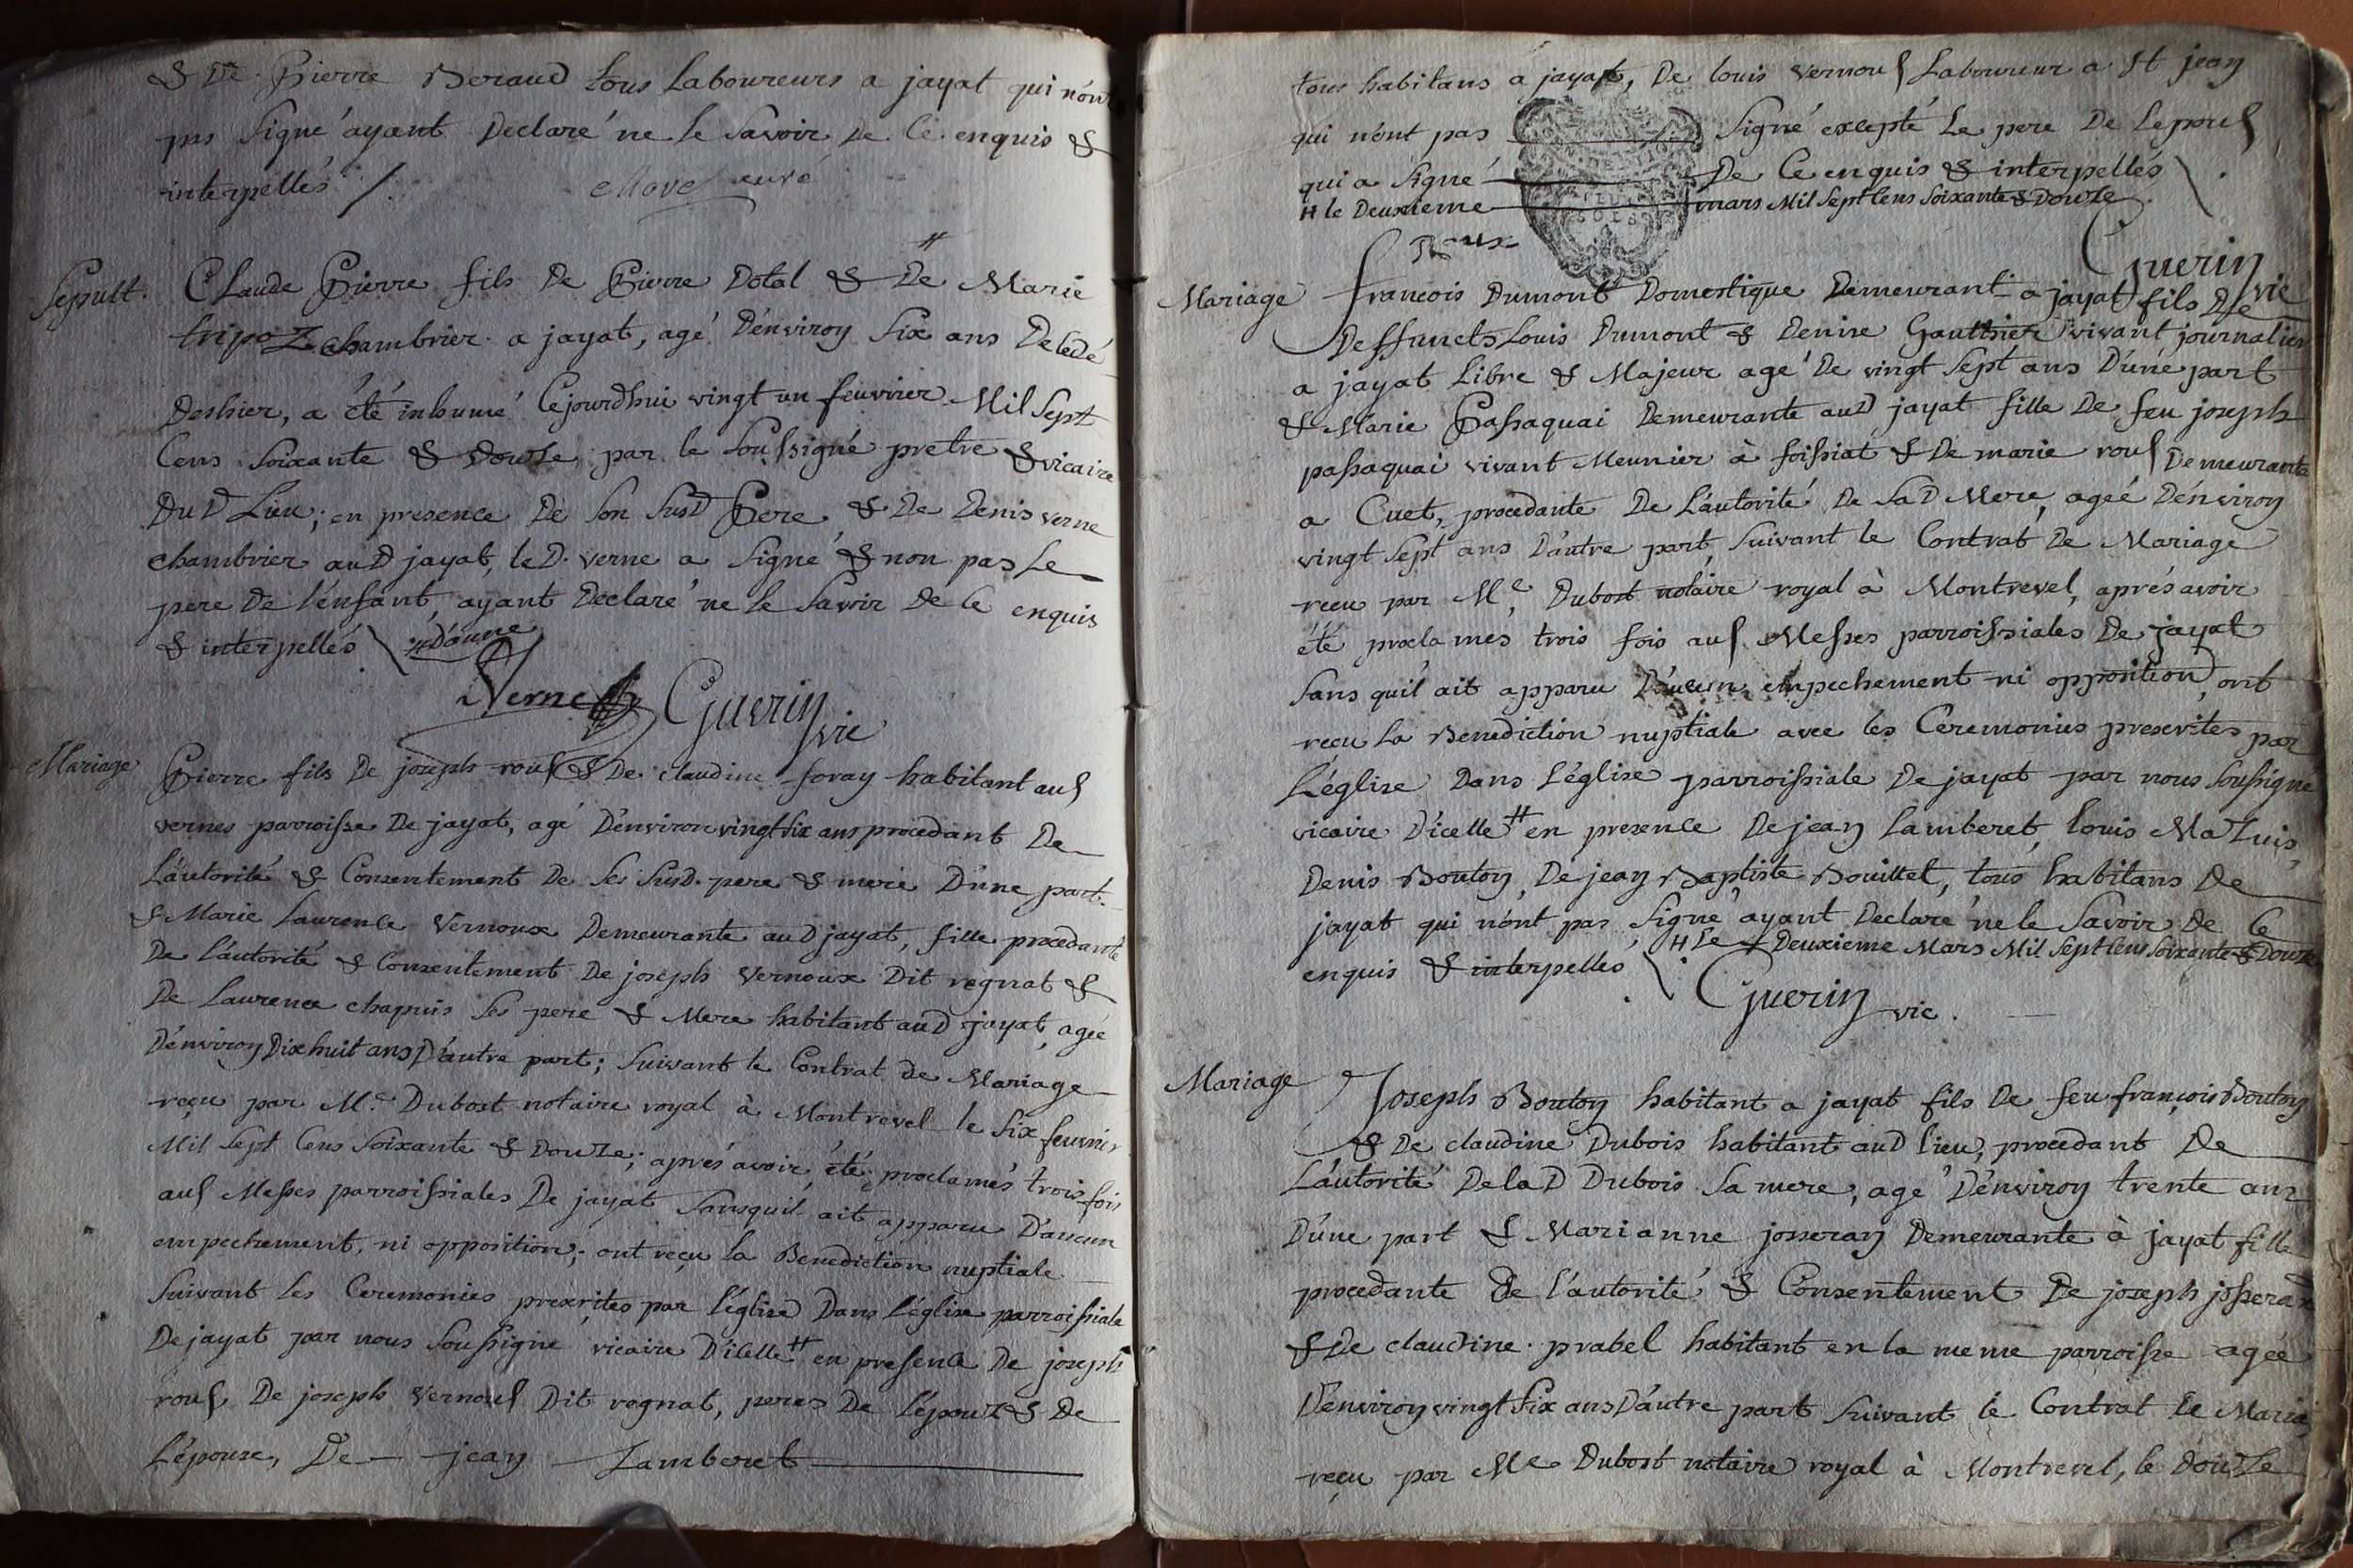 & De Pierre Beraud tous Laboureurs a jayat qui n'ont
pas Signé ayant Declaré ne le Savoir De Ce enquis &
interpellés /.
curé
Sepult.
Claude Pierre fils De Pierre Dotal & De # Marie
tripoz chambrier a jayat, agé D'environ Six ans Decedé
Deshier, a été inhumé Cejourdhui vingt un feuvrier Mil Sept
Cens Soixante & Douze par le Soussigné pretre & vicaire
Du D Lieu; en presence De Son Susd Pere & De Denis verne
chambrier au D jayat, le D. verne a Signé & non pas Le
pere De l'enfant, ayant Declaré ne le Savoir De Ce enquis
& interpellés \ # D'anne
Verne Guerin vic
Mariage
Pierre fils De joseph rous & De claudine foray habitant aus
vernes parroisse De jayat, agé D'environ vingt Six ans procedant De
L'autorité & Consentement De Ses Susd. pere & mere D'une part
& Marie Laurence Vernoux Demeurante au D jayat, fille procedante
De L'autorité & Consentement De joseph Vernoux Dit regnat &
De Laurence chapuis Ses pere & Mere habitant au D jayat, agée
D'environ Dix huit ans D'autre part; Suivant le Contrat De Mariage
reçu par Me. Dubost notaire royal à Montrevel le Six feuvrier
Mil Sept Cens Soixante & Douze; aprés avoir été proclamés trois fois
aus Messes parroissiales De jayat Sansquil ait apparu D'aucun
empechement, ni opposition; ont reçu la Benediction nuptiale
Suivant les Ceremonies prescrites par l'église Dans l'église parroissiale
De jayat par nous Soussigné vicaire D'icelle # en presence De joseph
rous De joseph Vernous Dit regnat, peres De l'épouz & De
L'épouse, De jean Lamberet
tous habitans a jayat, De louis vernous Laboureur a St jean
qui n'ont pas Signé excepté Le pere De Lepous
qui a Signé De Ce enquis & interpellés \.
# le Deuxieme mars Mil Sept Cens Soixante & Douze
Roux
Guerin vic
Mariage
francois Dumont Domestique Demeurant a jayat fils De
Deffuncts Louis Dumont & Denise Gauthier vivant journalier
a jayat Libre & Majeur agé De vingt Sept ans D'une part
& Marie Passaquai Demeurante au D jayat fille De feu joseph
passaquai vivant Meunier à foissiat & De marie rous Demeurante
a Cuet, procedante De L'autorité De Sa D Mere, agée D'environ
vingt Sept ans D'autre part, Suivant le Contrat De Mariage
reçu par Me. Dubost notaire royal à Montrevel, aprés avoir
été proclamés trois fois aus Messes parroissiales De jayat
Sans quil ait apparu D'aucun empechement ni opposition, ont
reçu La Benediction nuptiale avec les Ceremonies prescrites par
L'église Dans L'église parroissiale De jayat par nous Soussigné
vicaire D'icelle # en presence De jean Lamberet, louis Mazuis,
Denis Bouton, De jean Baptiste Bouillet, tous habitans De
jayat qui n'ont pas Signé ayant Declaré ne le Savoir De Ce
enquis & interpellés \. # Le Deuxieme Mars Mil Sept Cens Soixante & Douze
Guerin vic.
Mariage
Joseph Bouton habitant a jayat fils De feu françois Bouton
& De claudine Dubois habitant au D lieu, procedant De
L'autorité De la D Dubois Sa mere, agé D'environ trente ans
D'une part & Marianne josseran Demeurante à jayat fille
procedante De l'autorité & Consentement De joseph josserand
& De claudine prabel habitant en la meme parroisse agée
D'environ vingt Six ans D'autre part Suivant le Contrat De Maria
reçu par Me Dubost notaire royal à Montrevel, le Douze